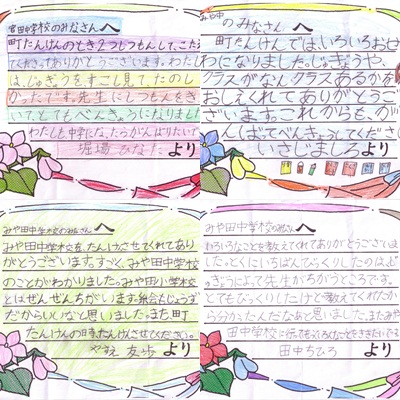 宮田中学校のみなさんへ
町たんけんのとき2つしつもんして、こた
ありがとうございます。わたし
は、じゅぎょうをすこし見てたのし
かったです。先生にしつもんをき
いて、とてもべんきょうになりました
わたしも中学になったらがんばりたいで
堀場 ひなた より
みや中
のみなさんへ
町たんけんでは、いろいろおせ
わになりました。じぎょうや、
クラスがなんクラスあるかを
おしえくれてありがとうござ
います。これからも、が
んばってべんきょうしてください
いさじましろ より
みや田中学校のみなさんへ
みや田中学校を、たんけんさせてくれてあり
がとうございます。すごく、みや田中学校
のことがわかりました。みや田小学校
とはぜんぜんちがいます。絵もじょうず
だからいいなと思いました。また町
たんけんの時、たんけんさせてください。
友歩 より
みや田中学校のみなさんへ
いろいろなことを教えてくれてありがとうございま
した。とくにいちばんびっくりしたのはじゅ
ぎょうによって先生がちがうところです。
とてもびっくりしたけど教えてくれたか
ら分かったんだなあと思いました。またみや
田中学校に行って
田中ちひろ より